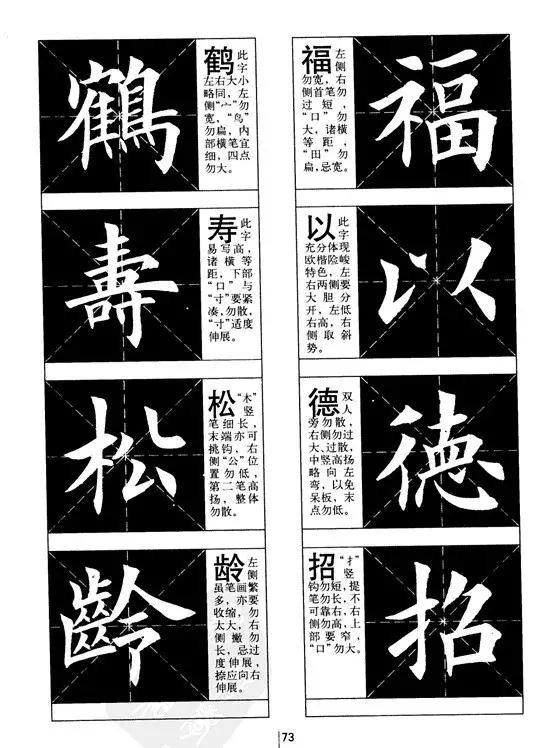 鶴
鹤 此字
左右大小
略同,左
侧“亠”勿
宽,“鸟”
勿扁,内
部横笔宜
细,四点
勿大。
壽
寿 此字
易写高,
诸横等
距,下部
“口”与
“寸”要紧
凑,勿散,
“寸”适度
伸展。
松
松 “木”竖
笔细长,
末端亦可
挑钩,右
侧“公”位
置勿低,
第二笔高
扬,整体
勿散。
齡
龄 左侧
虽笔画繁
多,亦要
收缩,勿
太大,右
侧撇勿
长,忌过
度伸展,
捺应向右
伸展。
福
福 左侧
勿宽,右
侧首笔勿
过短,
“口”勿
大,诸横
等距,
“田”勿
扁,忌宽。
以
以 此字
充分体现
欧楷险峻
特色,左
右两侧要
大胆分
开,左低
右高,右
侧取斜
势。
德
德 双人
旁勿散,
右侧勿过
大、过散,
中竖高扬
略向左
弯,以免
呆板,末
点勿低。
招
招 “扌”竖
钩勿短,提
笔勿长,不
可靠右,右
侧勿高,上
部要窄,
“口”勿大。
73